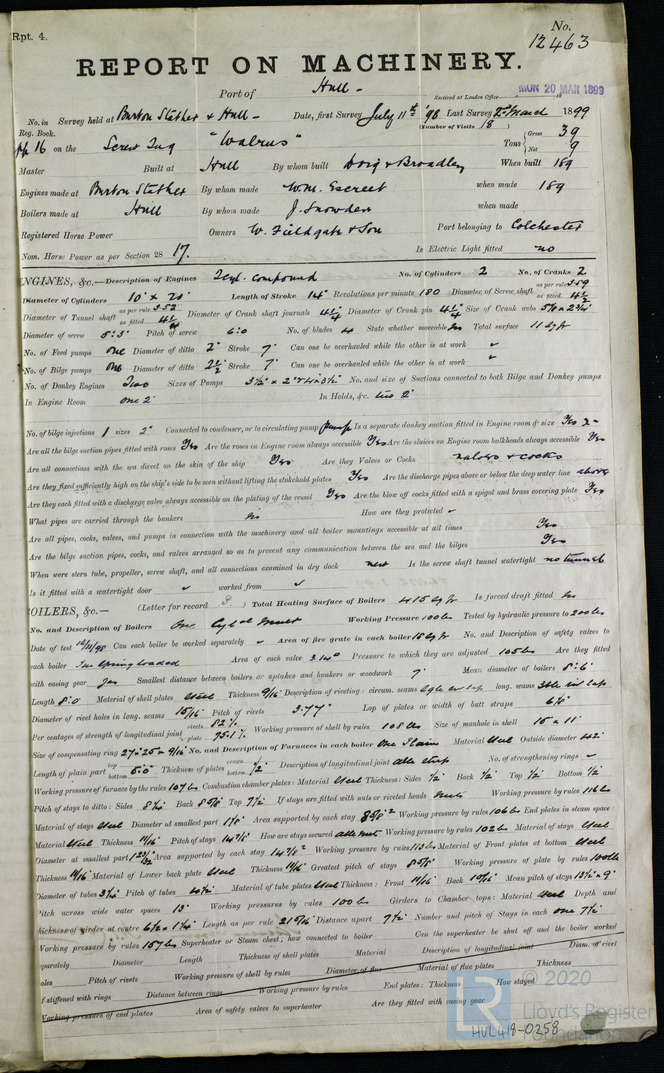 Rpt. 4.
No. 12463
REPORT ON MACHINERY.
Port of Hull -
Received at London Office MON 20 MAR 1899
No. in Reg. Book. Survey held at Burton Stather & Hull - Date, first Survey July 11th '98 Last Survey 2nd March 1899
(Number of Visits 18 )
on the Screw Tug "Walrus" Tons Gross 39 Net 9
Master Built at Hull By whom built Doig & Broadley When built 189
Engines made at Burton Stather By whom made Wm. Escreet when made 189
Boilers made at Hull By whom made J. Snowden when made
Registered Horse Power Owners W. Fieldgate & Son Port belonging to Colchester
Nom. Horse Power as per Section 28 17. Is Electric Light fitted no
ENGINES, &c.—Description of Engines 2 cyl. compound No. of Cylinders 2 No. of Cranks 2
Diameter of Cylinders 10" x 20" Length of Stroke 14" Revolutions per minute 180 Diameter of Screw shaft as per rule 3.59 as fitted 4 1/2
Diameter of Tunnel shaft as per rule 3.52 as fitted Diameter of Crank shaft journals 4 1/4" Diameter of Crank pin 4 1/4" Size of Crank webs
Diameter of screw 5'.3" Pitch of screw 6'.0 No. of blades 4 State whether moveable no Total surface 11 sq ft
No. of Feed pumps one Diameter of ditto 2" Stroke 7" Can one be overhauled while the other is at work ✓
No. of Bilge pumps one Diameter of ditto 2 1/2" Stroke 7" Can one be overhauled while the other is at work ✓
No. of Donkey Engines Two Sizes of Pumps No. and size of Suctions connected to both Bilge and Donkey pumps
In Engine Room one 2" In Holds, &c. two 2"
No. of bilge injections 1 sizes 2" Connected to condenser, or to circulating pump pump Is a separate donkey suction fitted in Engine room & size Yes 2"
Are all the bilge suction pipes fitted with roses Yes Are the roses in Engine room always accessible Yes Are the sluices on Engine room bulkheads always accessible Yes
Are all connections with the sea direct on the skin of the ship Yes Are they Valves or Cocks valves & cocks
Are they fixed sufficiently high on the ship's side to be seen without lifting the stokehold plates Yes Are the discharge pipes above or below the deep water line above
Are they each fitted with a discharge valve always accessible on the plating of the vessel Yes Are the blow off cocks fitted with a spigot and brass covering plate Yes
What pipes are carried through the bunkers no How are they protected ✓
Are all pipes, cocks, valves, and pumps in connection with the machinery and all boiler mountings accessible at all times Yes
Are the bilge suction pipes, cocks, and valves arranged so as to prevent any communication between the sea and the bilges Yes
When were stern tube, propeller, screw shaft, and all connections examined in dry dock new Is the screw shaft tunnel watertight no tunnel
Is it fitted with a watertight door ✓ worked from ✓
BOILERS, &c.— (Letter for record S ) Total Heating Surface of Boilers 415 sq ft Is forced draft fitted no
No. and Description of Boilers One Cyl. Mult Working Pressure 100 lbs Tested by hydraulic pressure to 200 lbs
Date of test Can each boiler be worked separately ✓ Area of fire grate in each boiler 15 sq ft No. and Description of safety valves to
each boiler Two Spring loaded Area of each valve 3.14" Pressure to which they are adjusted 105 lbs Are they fitted
with easing gear yes Smallest distance between boilers or uptakes and bunkers or woodwork 7" Mean diameter of boilers 8'.6"
Length 8'.0 Material of shell plates Steel Thickness 9/16 Description of riveting: circum. seams long. seams
Diameter of rivet holes in long. seams 15/16 Pitch of rivets 3.77" Lap of plates or width of butt straps
Per centages of strength of longitudinal joint rivets 82% plate 75.1% Working pressure of shell by rules 108 lbs Size of manhole in shell 15" x 11"
Size of compensating ring No. and Description of Furnaces in each boiler One Plain Material Steel Outside diameter
Length of plain part top bottom 5'.0" Thickness of plates crown bottom 1/2" Description of longitudinal joint No. of strengthening rings ✓
Working pressure of furnace by the rules 107 lbs Combustion chamber plates: Material Steel Thickness: Sides 1/2 Back 1/2 Top 1/2 Bottom 1/2
Pitch of stays to ditto: Sides Back Top 7 1/2 If stays are fitted with nuts or riveted heads Nuts Working pressure by rules 116 lbs
Material of stays Steel Diameter at smallest part Area supported by each stay Working pressure by rules 106 lbs End plates in steam space:
Material Steel Thickness 11/16 Pitch of stays How are stays secured Working pressure by rules 102 lbs Material of stays Steel
Diameter at smallest part Area supported by each stay Working pressure by rules Material of Front plates at bottom Steel
Thickness Material of Lower back plate Steel Thickness Greatest pitch of stays Working pressure of plate by rules 100 lbs
Diameter of tubes 3 1/4" Pitch of tubes Material of tube plates Steel Thickness: Front 11/16 Back Mean pitch of stays
Pitch across wide water spaces 13" Working pressures by rules 100 lbs Girders to Chamber tops: Material Steel Depth and
thickness of girder at centre Length as per rule Distance apart 7 1/2" Number and pitch of Stays in each one 7 1/2"
Working pressure by rules 157 lbs Superheater or Steam chest; how connected to boiler Can the superheater be shut off and the boiler worked
separately Diameter Length Thickness of shell plates Material Description of longitudinal joint Diam. of rivet
holes Pitch of rivets Working pressure of shell by rules Diameter of flue Material of flue plates Thickness
If stiffened with rings Distance between rings Working pressure by rules End plates: Thickness How stayed
Working pressure of end plates Area of safety valves to superheater Are they fitted with easing gear
© 2020
LR Lloyd's Register Foundation
HUL418-0258